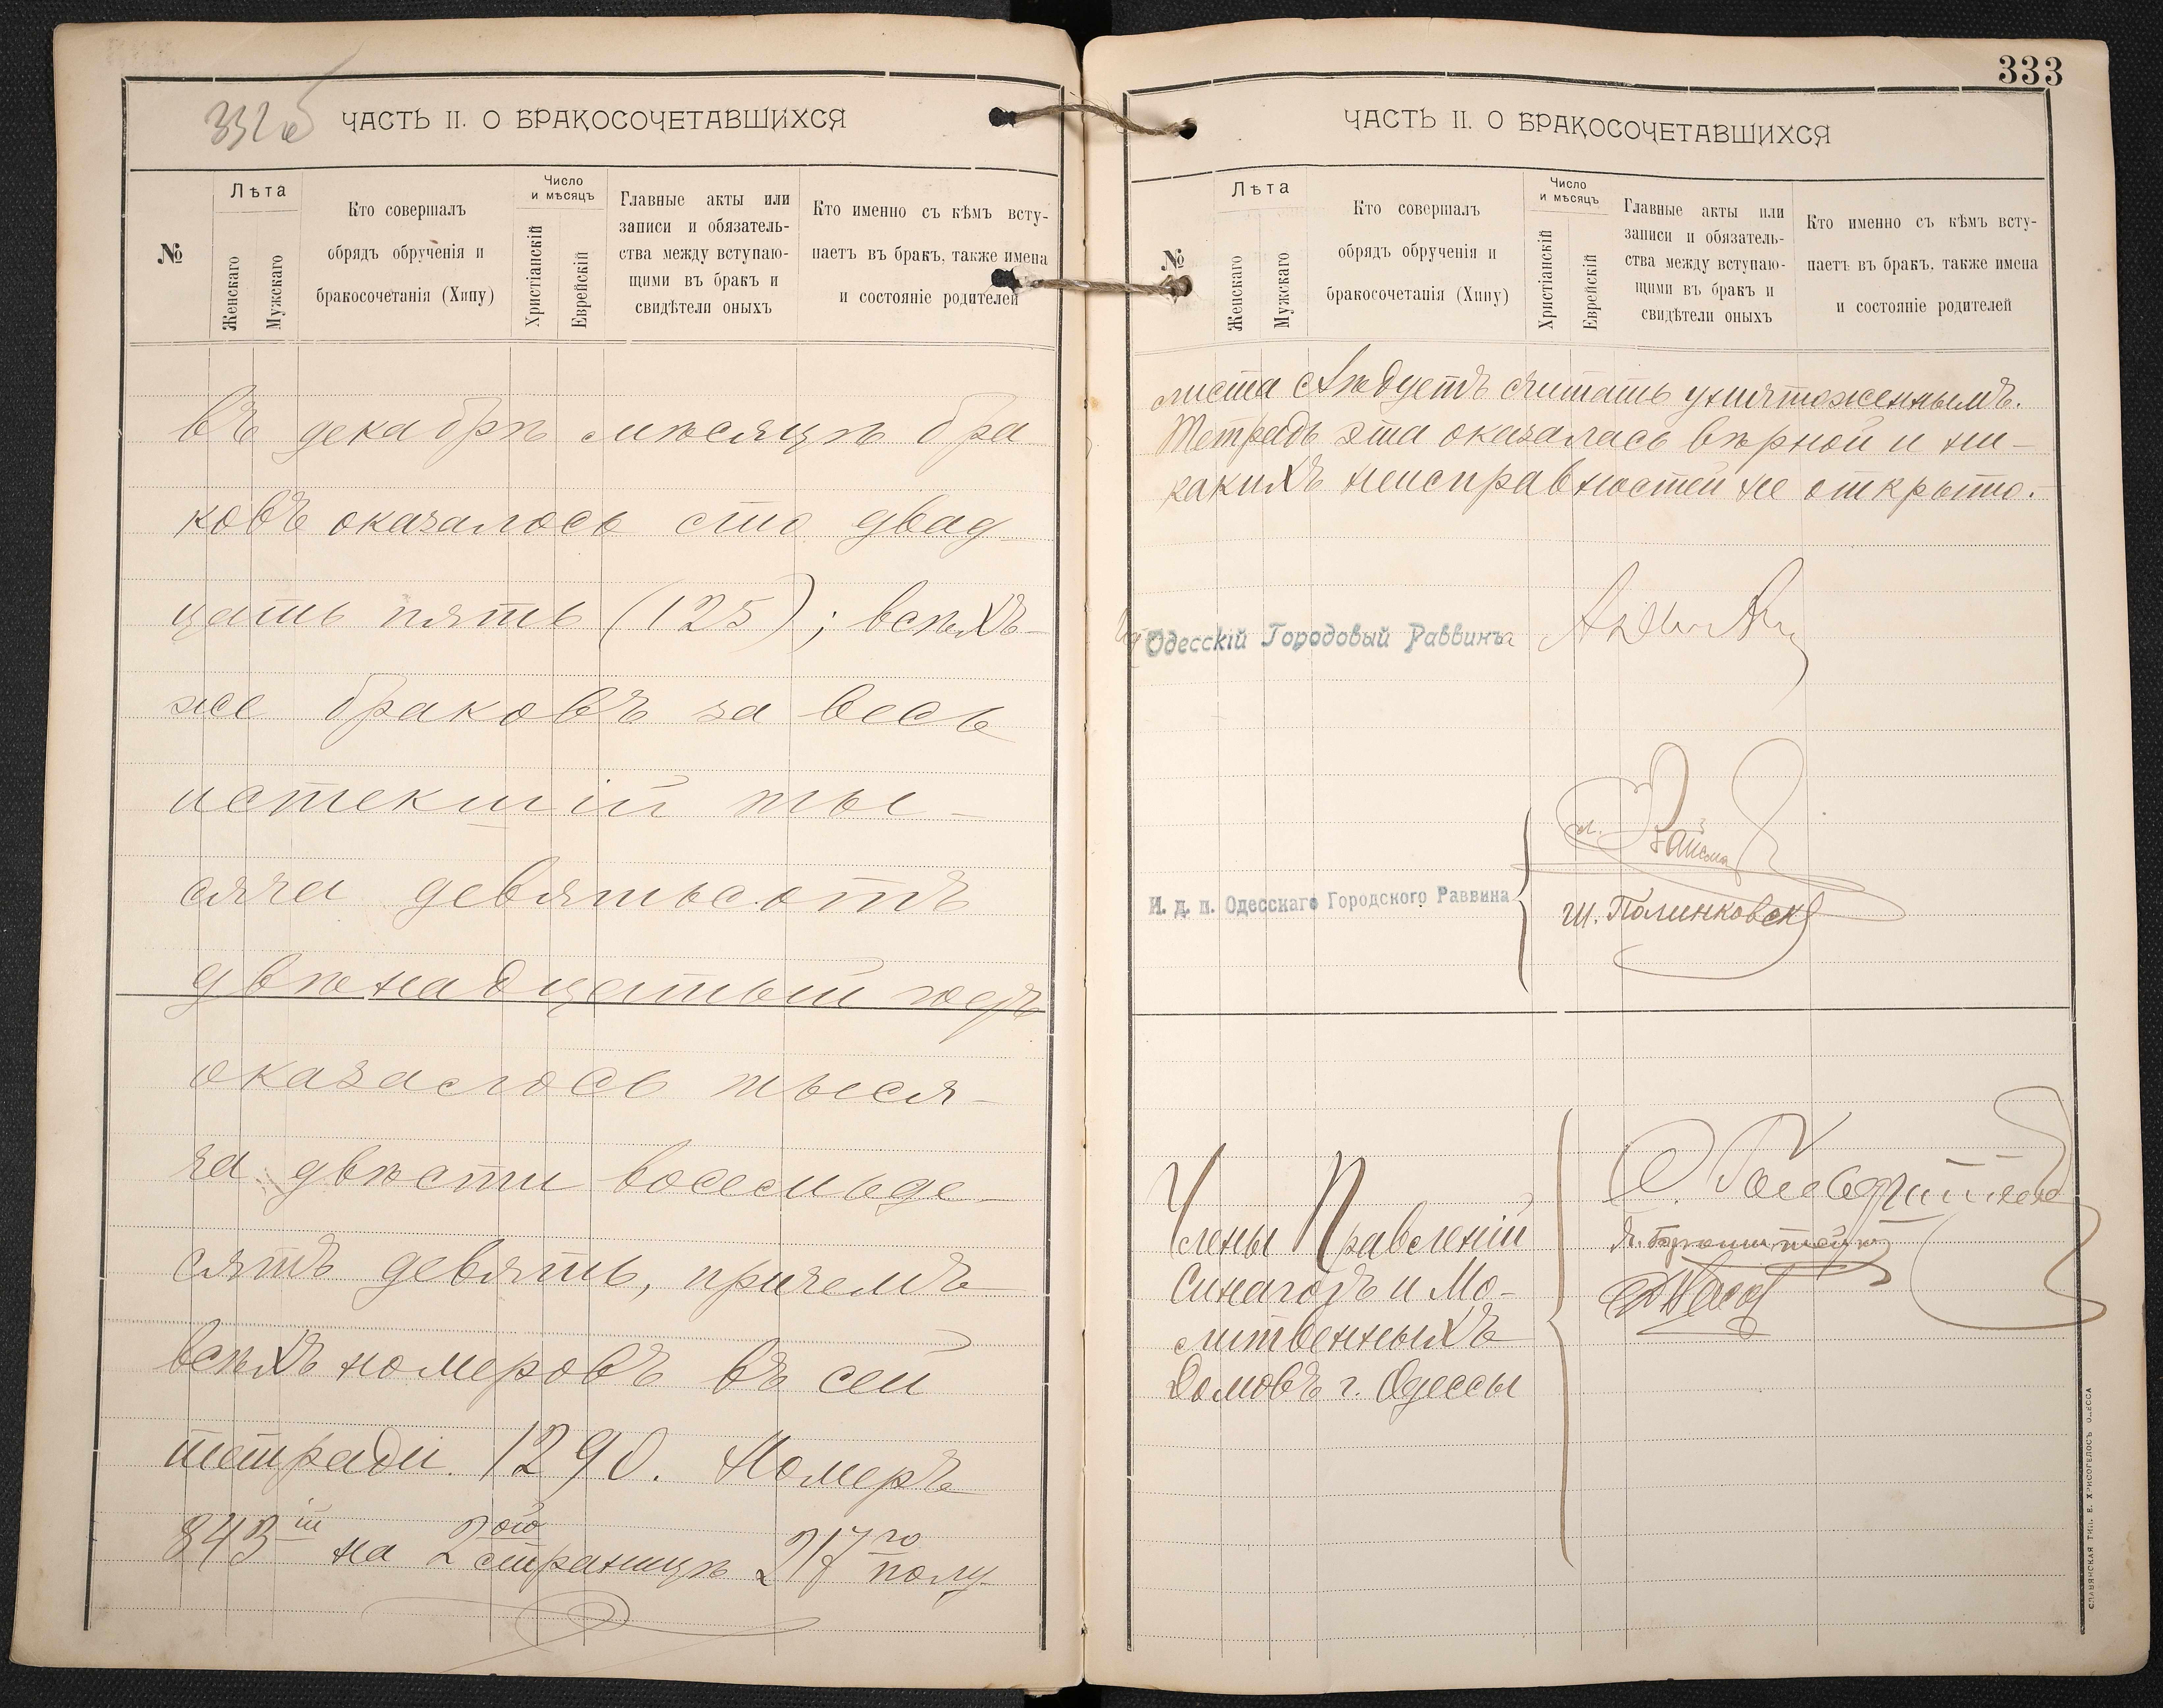 332 об
ЧАСТЬ II. О БРАКОСОЧЕТАВШИХСЯ
№
Лѣта
Женскаго
Мужскаго
Кто совершалъ
обрядъ обрученія и
бракосочетанія (Хипу)
Число
и мѣсяцъ
Христіанскій
Еврейскій
Главные акты или
записи и обязатель-
ства между вступаю-
щими въ бракъ и
свидѣтели оныхъ
Кто именно съ кѣмъ всту-
паетъ въ бракъ, также имена
и состояніе родителей
Въ декабрѣ мѣсяцѣ бра
ковъ оказалось сто двад
цать пять (125); всѣхъ-
же браковъ за весь
истекшій ты-
сяча девятьсотъ
двѣнадцатый годъ
оказалось тыся-
ча двѣсти восемьде-
сятъ девять, причемъ
всѣхъ номеровъ въ сей
тетради 1290. Номеръ
843ій на 2ой страницѣ 217го полу-
333
ЧАСТЬ II. О БРАКОСОЧЕТАВШИХСЯ
№
Лѣта
Женскаго
Мужскаго
Кто совершалъ
обрядъ обрученія и
бракосочетанія (Хипу)
Число
и мѣсяцъ
Христіанскій
Еврейскій
Главные акты или
записи и обязатель-
ства между вступаю-
щими въ бракъ и
свидѣтели оныхъ
Кто именно съ кѣмъ всту-
паетъ въ бракъ, также имена
и состояніе родителей
листа слѣдуетъ считать уничтоженнымъ.
Тетрадь эта оказалась вѣрной и ни-
какихъ неисправностей не открыто.
Одесскій Городовый Раввинъ
И. д. п. Одесскаго Городского Раввина
Ш. Полинковск
Члены Правленій
Синагогъ и Мо-
литвенныхъ
Домовъ г. Одессы
СЛАВЯНСКАЯ ТИП. Е. ХРИСОГЕЛОСЪ ОДЕССА